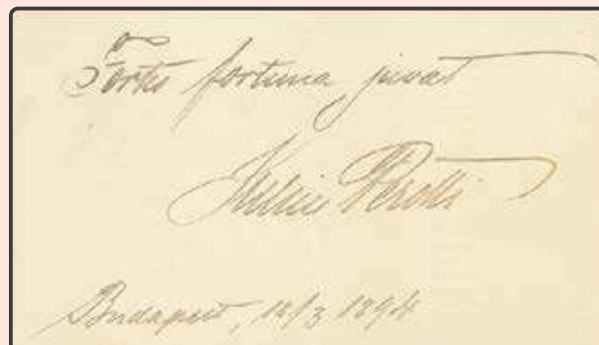 Fortes fortuna juvat
Julius Perotti
Budapest, 12/3 1894